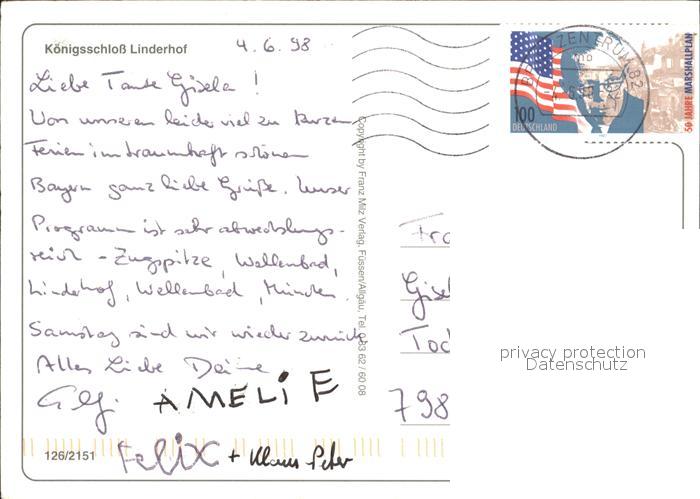 Königsschloß Linderhof
4.6.98
Liebe Tante Gisela !
Von unseren leider viel zu kurzen
Ferien im traumhaft schönen
Bayern ganz liebe Grüße. Unser
Programm ist sehr abwechslungs-
reich - Zugspitze, Wellenbad,
Linderhof, Wellenbad, München.
Samstag sind wir wieder zurück.
Alles Liebe Deine
AMELIE
Felix + Klaus-Peter
126/2151
Copyright by Franz Milz Verlag, Füssen/Allgäu, Tel. 0 83 62 / 60 08
100
DEUTSCHLAND
50 JAHRE MARSHALLPLAN
BRIEFZENTRUM 82
Fra
Gisel
Tod
798
privacy protection
Datenschutz